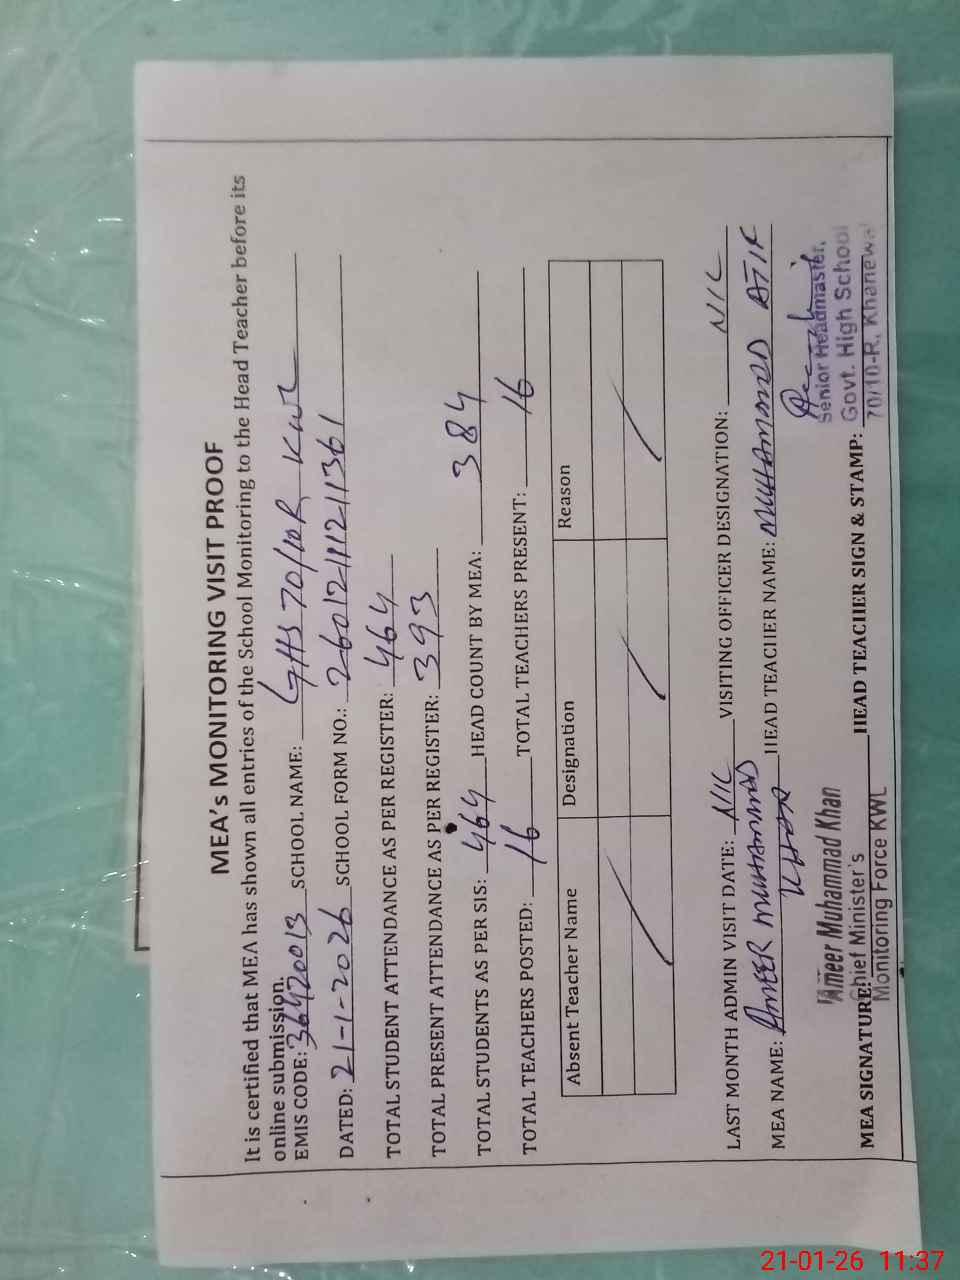 MEA's MONITORING VISIT PROOF
It is certified that MEA has shown all entries of the School Monitoring to the Head Teacher before its
online submission.
EMIS CODE: 36420013 SCHOOL NAME: GHS 70/10R KWL
DATED: 21-1-2026 SCHOOL FORM NO.: 26012111211361
TOTAL STUDENT ATTENDANCE AS PER REGISTER: 464
TOTAL PRESENT ATTENDANCE AS PER REGISTER: 393
TOTAL STUDENTS AS PER SIS: 464 HEAD COUNT BY MEA: 384
TOTAL TEACHERS POSTED: 16 TOTAL TEACHERS PRESENT: 16
Absent Teacher Name Designation Reason
LAST MONTH ADMIN VISIT DATE: NIL VISITING OFFICER DESIGNATION: NIL
MEA NAME: AMEER MUHAMMAD KHAN HEAD TEACHER NAME: MUHAMMAD ATIF
Ameer Muhammad Khan
Chief Minister's
Monitoring Force KWL
Senior Headmaster,
Govt. High School
70/10-R, Khanewal
MEA SIGNATURE: HEAD TEACHER SIGN & STAMP:
21-01-26 11:37